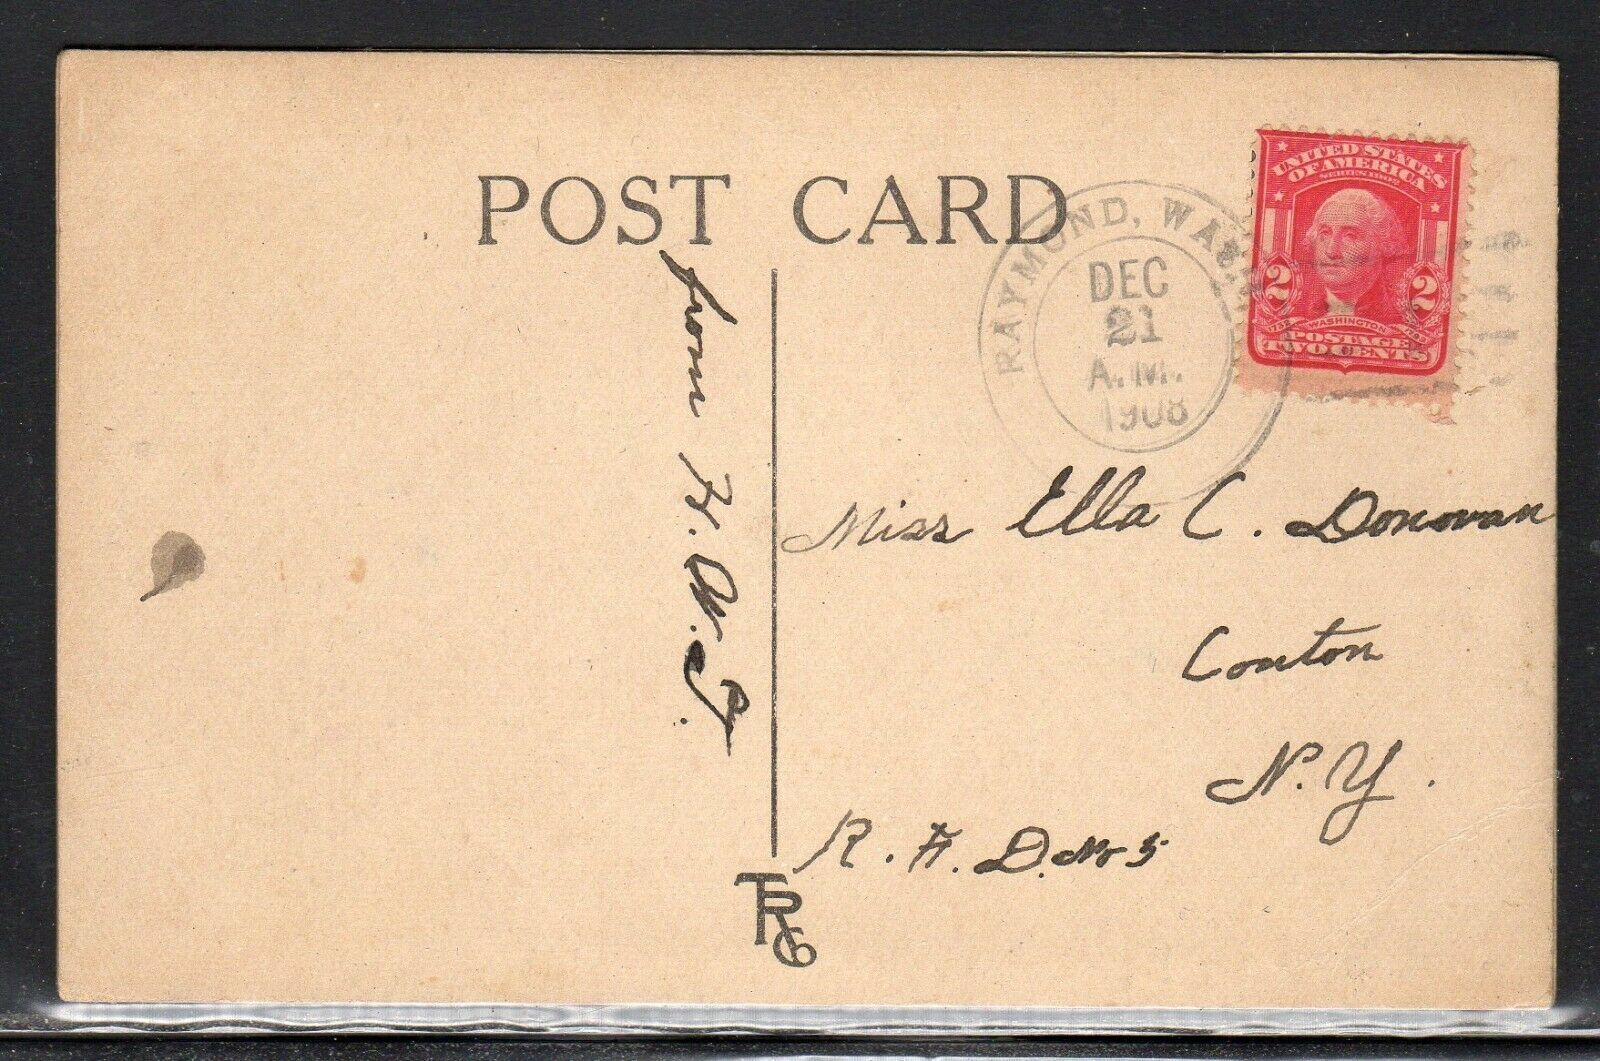 POST CARD
RAYMOND, WASH.
DEC
21
A.M.
1908
UNITED STATES
OF AMERICA
SERIES 1902
2 2
1732 WASHINGTON 1799
POSTAGE
TWO CENTS
from H. W. T.
Miss Ella C. Donovan
Conton
N. Y.
R. F. D. No 5
TRG